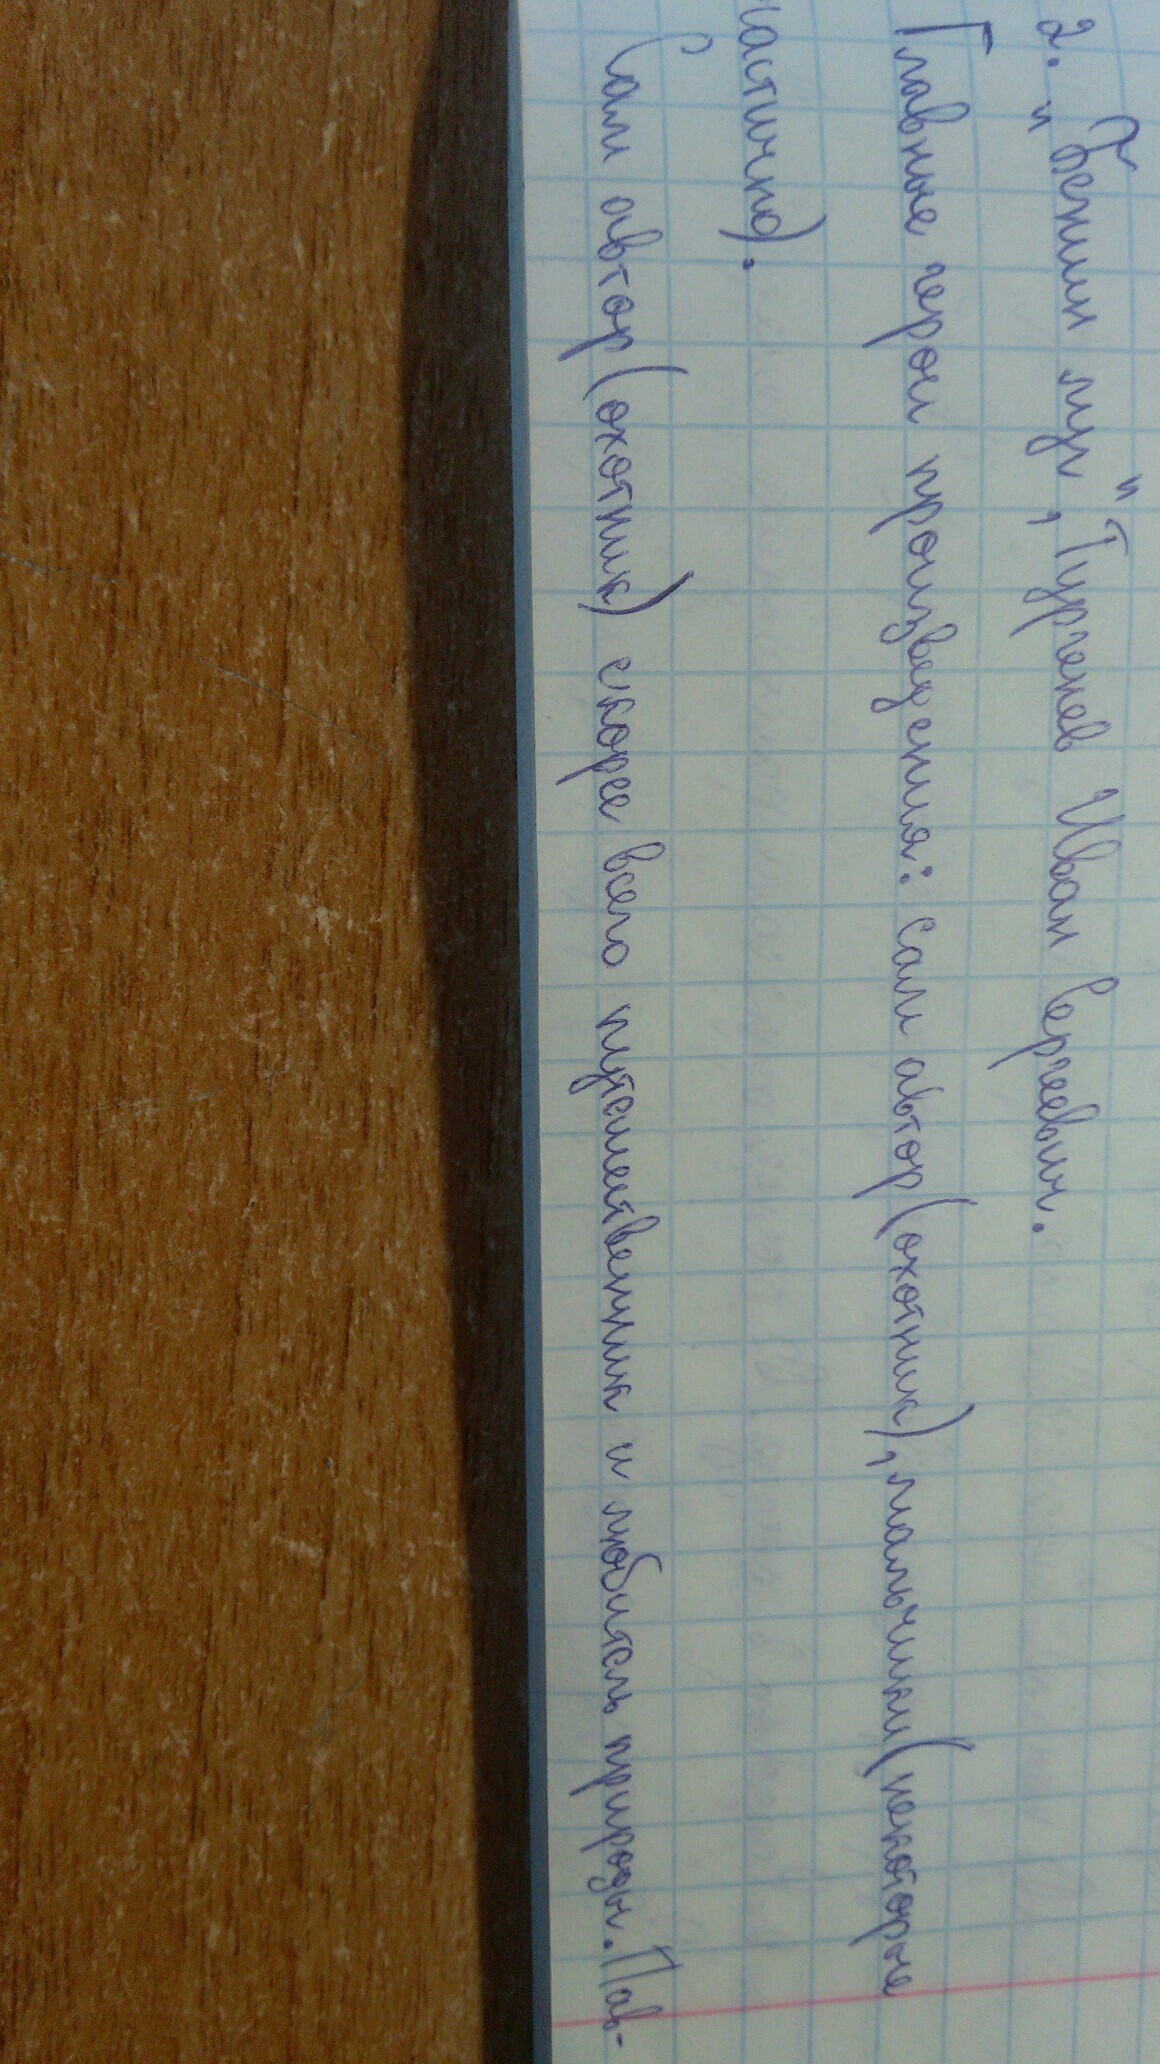 2. "Бежин луг", Тургенев Иван Сергеевич.
Главные герои произведения: сам автор (охотник), мальчики (некоторые
частично).
Сам автор (охотник) скорее всего путешественник и любитель природы. Пав-